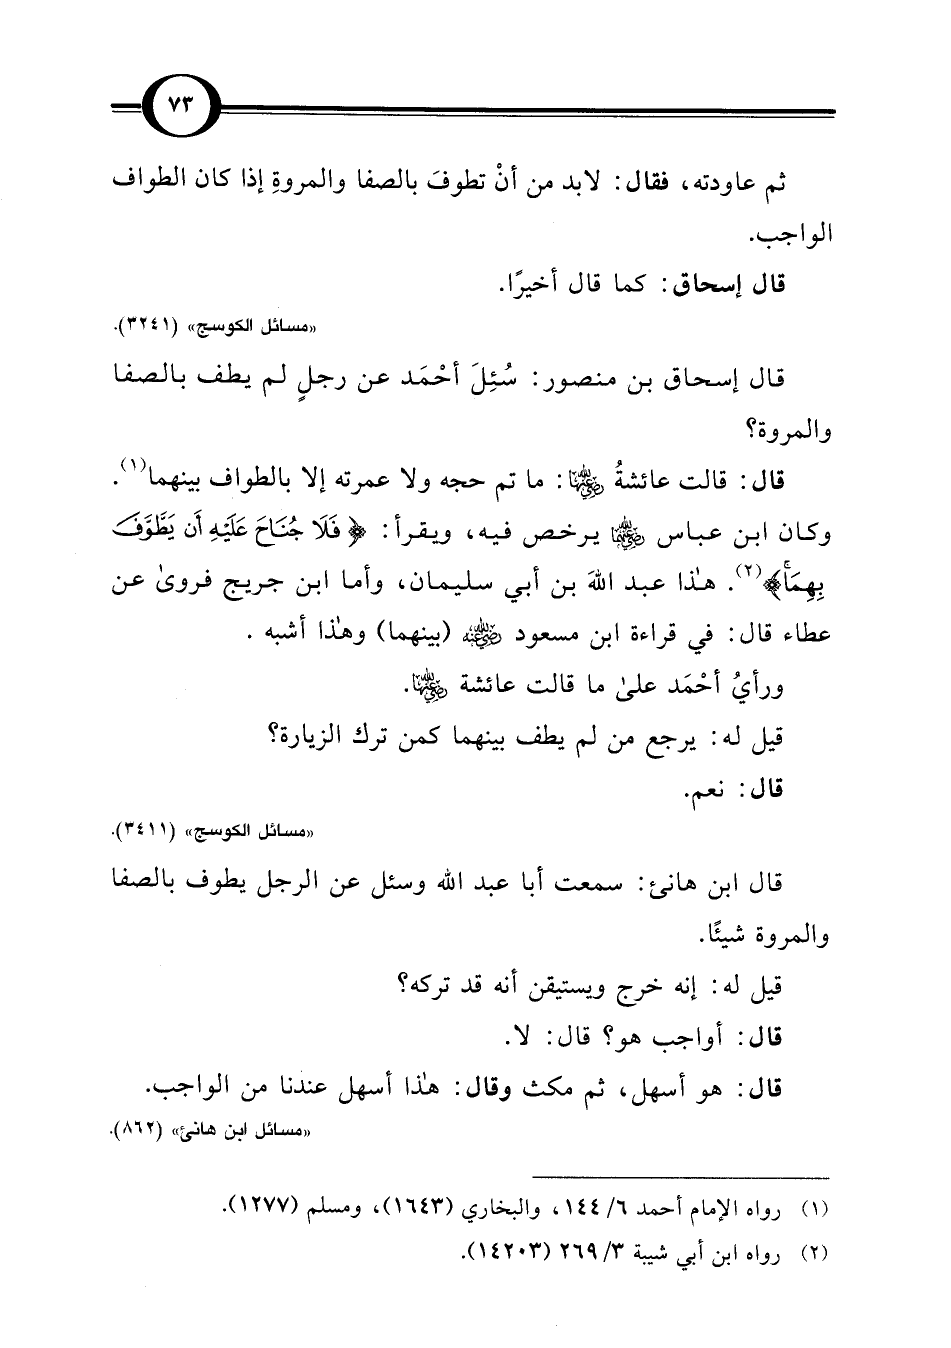 ٧٣
ثم عاودته، فقال: لابد من أنْ تطوفَ بالصفا والمروةِ إذا كان الطواف
الواجب.
قال إسحاق: كما قال أخيرًا.
«مسائل الكوسج» (٣٢٤١).
قال إسحاق بن منصور: سُئِلَ أحْمَد عن رجلٍ لم يطف بالصفا
والمروة؟
قال: قالت عائشةُ رضي الله عنها: ما تم حجه ولا عمرته إلا بالطواف بينهما(١).
وكان ابن عباس رضي الله عنهما يرخص فيه، ويقرأ: ﴿فَلَا جُنَاحَ عَلَيْهِ أَن يَطَّوَّفَ
بِهِمَا﴾(٢). هذا عبد الله بن أبي سليمان، وأما ابن جريج فروىٰ عن
عطاء قال: في قراءة ابن مسعود رضي الله عنه (بينهما) وهذا أشبه .
ورأيُ أحْمَد علىٰ ما قالت عائشة رضي الله عنها.
قيل له: يرجع من لم يطف بينهما كمن ترك الزيارة؟
قال: نعم.
«مسائل الكوسج» (٣٤١١).
قال ابن هانئ: سمعت أبا عبد الله وسئل عن الرجل يطوف بالصفا
والمروة شيئًا.
قيل له: إنه خرج ويستيقن أنه قد تركه؟
قال: أواجب هو؟ قال: لا.
قال: هو أسهل، ثم مكث وقال: هذا أسهل عندنا من الواجب.
«مسائل ابن هانئ» (٨٦٢).
(١) رواه الإمام أحمد ٦/ ١٤٤، والبخاري (١٦٤٣)، ومسلم (١٢٧٧).
(٢) رواه ابن أبي شيبة ٣/ ٢٦٩ (١٤٢٠٣).